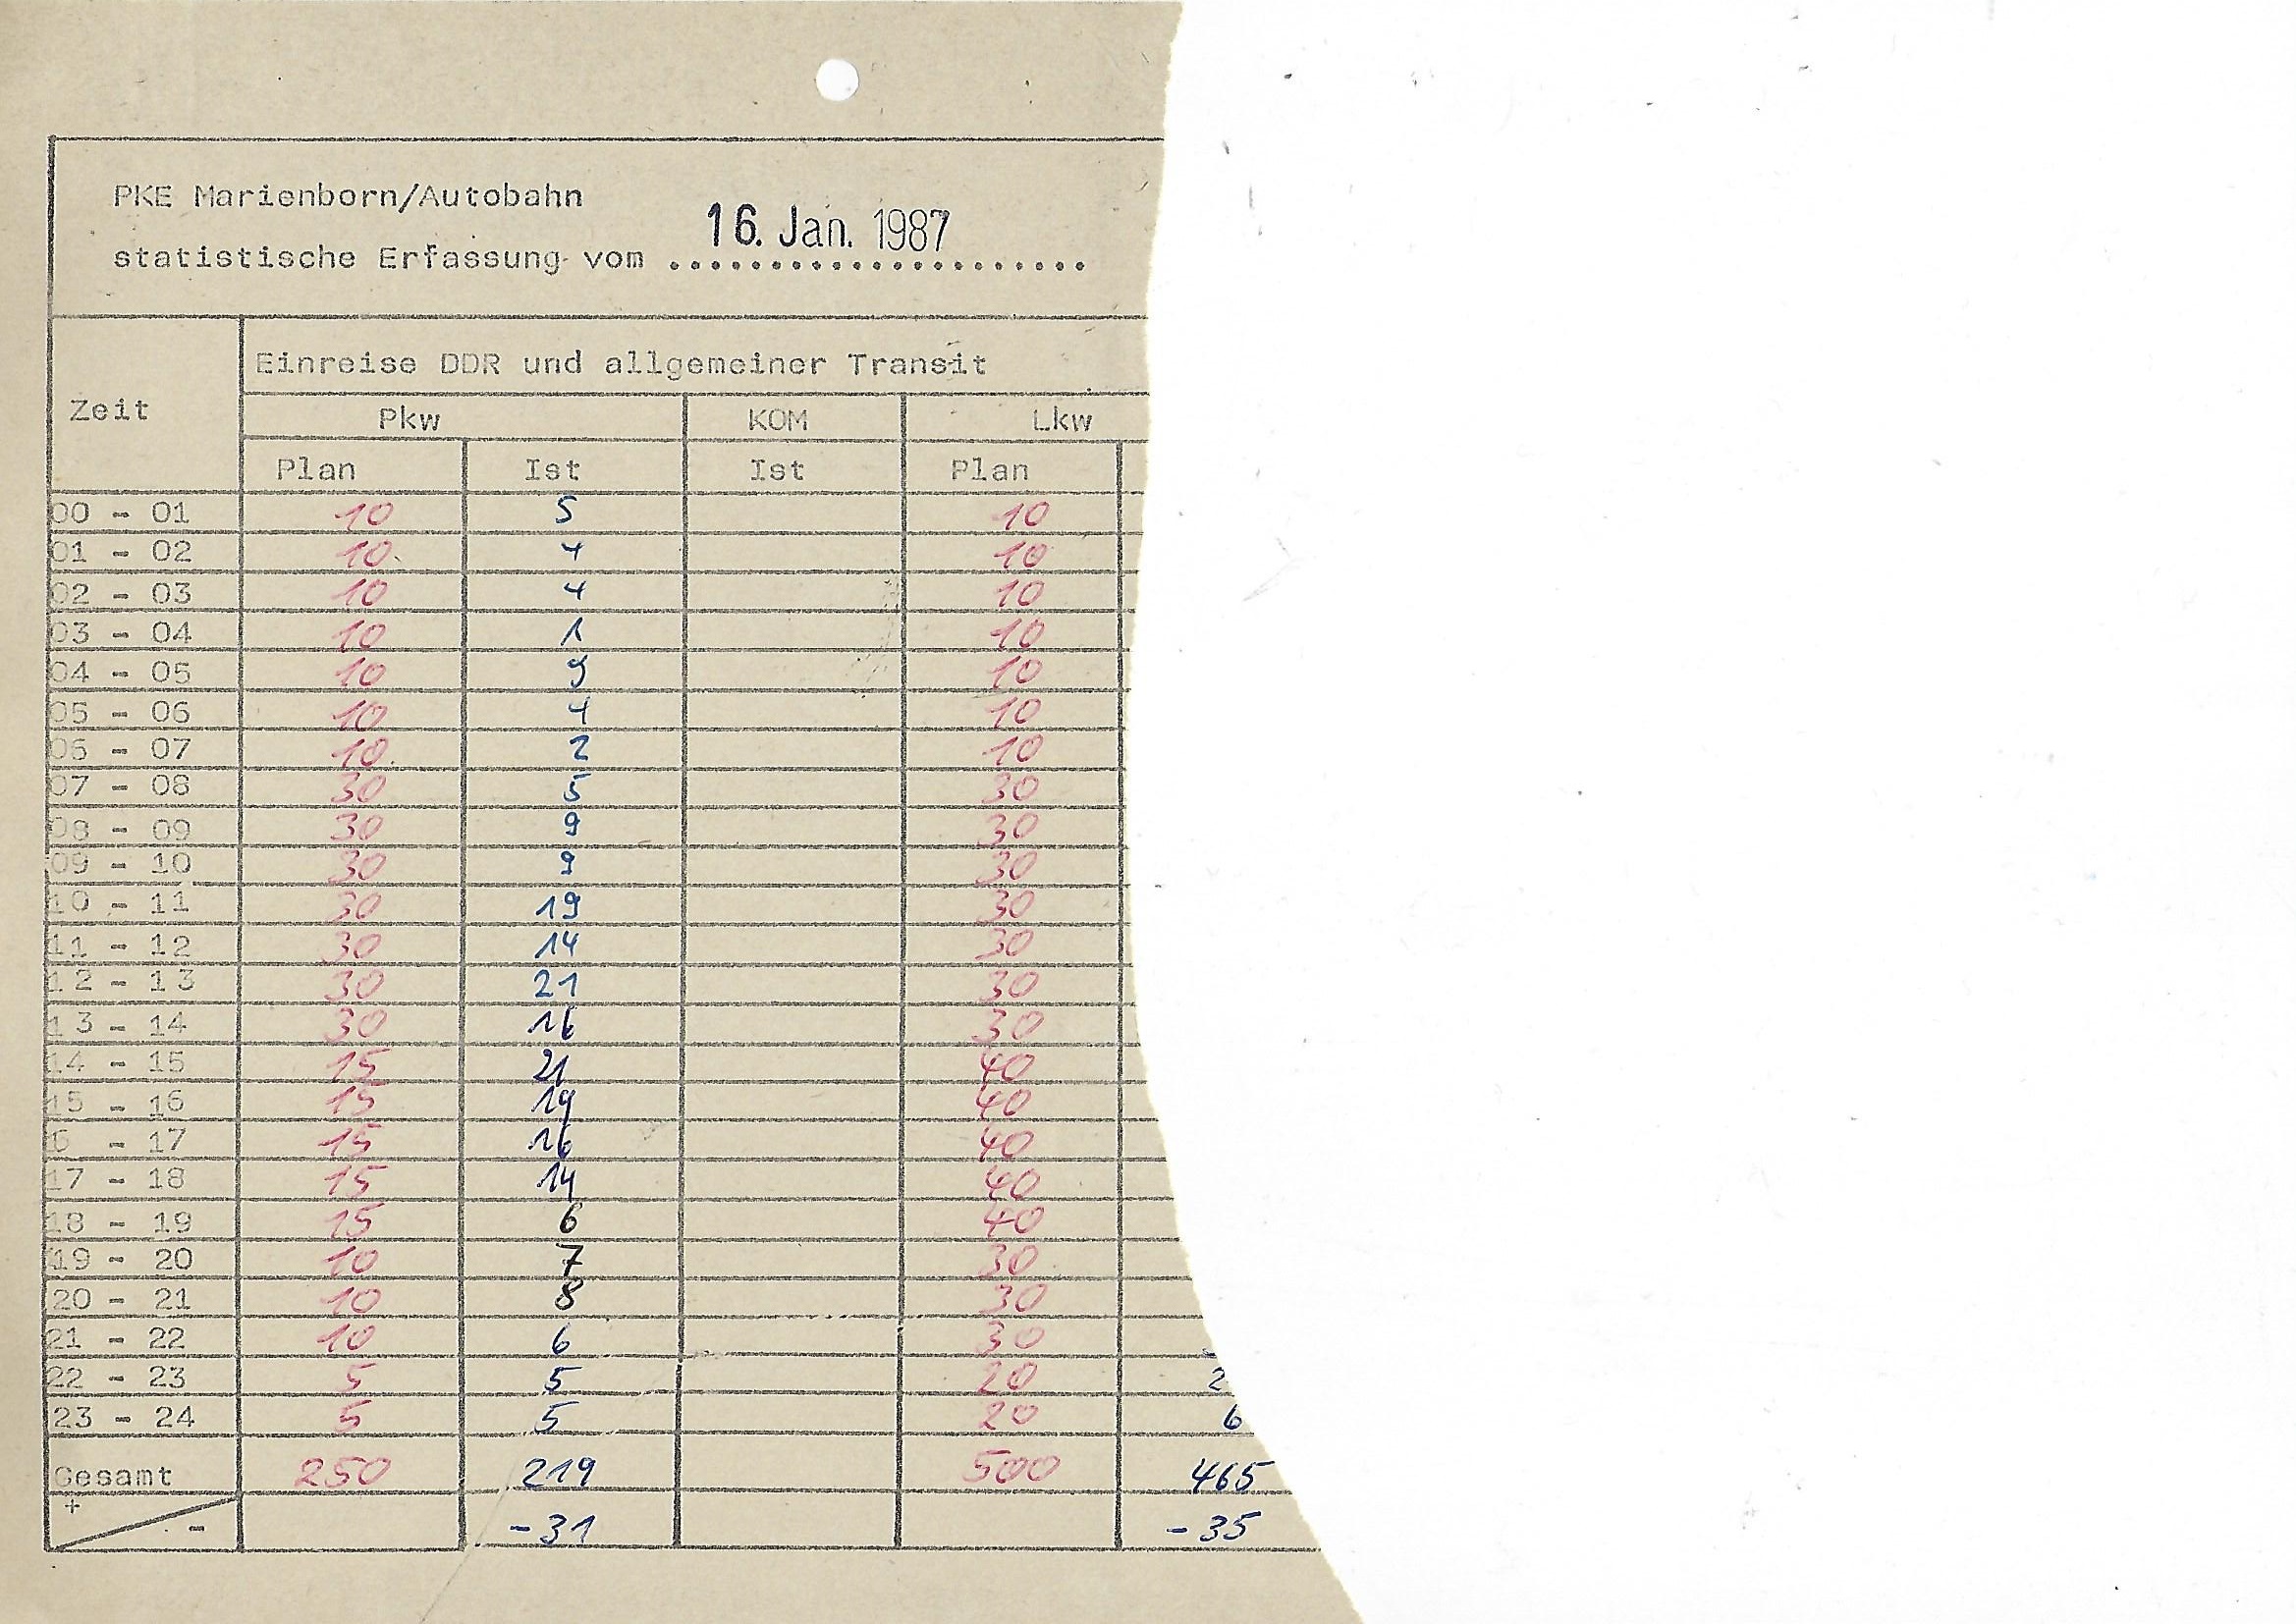 PKE Marienborn/Autobahn
16. Jan. 1987
statistische Erfassung vom .....................
Zeit
Einreise DDR und allgemeiner Transit
Pkw KOM Lkw
Plan Ist Ist Plan
00 - 01 10 5 10
01 - 02 10 4 10
02 - 03 10 4 10
03 - 04 10 1 10
04 - 05 10 9 10
05 - 06 10 4 10
06 - 07 10 2 10
07 - 08 30 5 30
08 - 09 30 9 30
09 - 10 30 9 30
10 - 11 30 19 30
11 - 12 30 14 30
12 - 13 30 21 30
13 - 14 30 16 30
14 - 15 15 21 40
15 - 16 15 19 40
6 - 17 15 16 40
17 - 18 15 14 40
18 - 19 15 6 40
19 - 20 10 7 30
20 - 21 10 8 30
21 - 22 10 6 30
22 - 23 5 5 20 2
23 - 24 5 5 20 6
Gesamt 250 219 500 465
+ - -31 -35